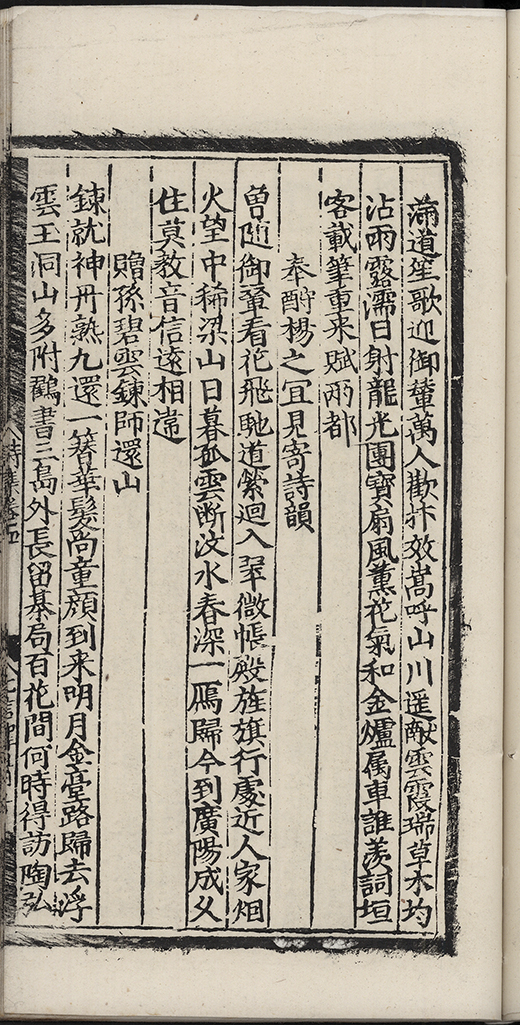 滿道笙歌迎御輦萬人歡抃效嵩呼山川遥獻雲霞瑞草木均
沾雨露濡日射龍光團寶扇風薰花氣和金爐属車誰羡詞垣
客載筆重來賦兩都
奉酧楊之冝見寄詩韻
曽随御輦看花飛馳道縈迴入翠微帳殿旌旗行處近人家烟
火望中稀梁山日暮孤雲断汶水春深一鴈歸今到廣陽成久
住莫教音信遠相違
贈孫碧雲鍊師還山
鍊就神丹熟九還一簪華髮尚童顔到来明月金臺路歸去浮
雲玉洞山多附鶴書三島外長留棊局百花間何時得訪陶弘